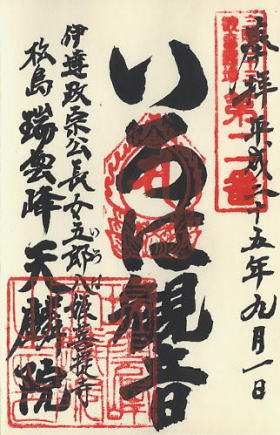 奉拝 平成二十五年九月一日
第二番
いろは観音
伊達政宗公長女五郎八姫菩提寺
いろは
松島 瑞雲峰 天麟院